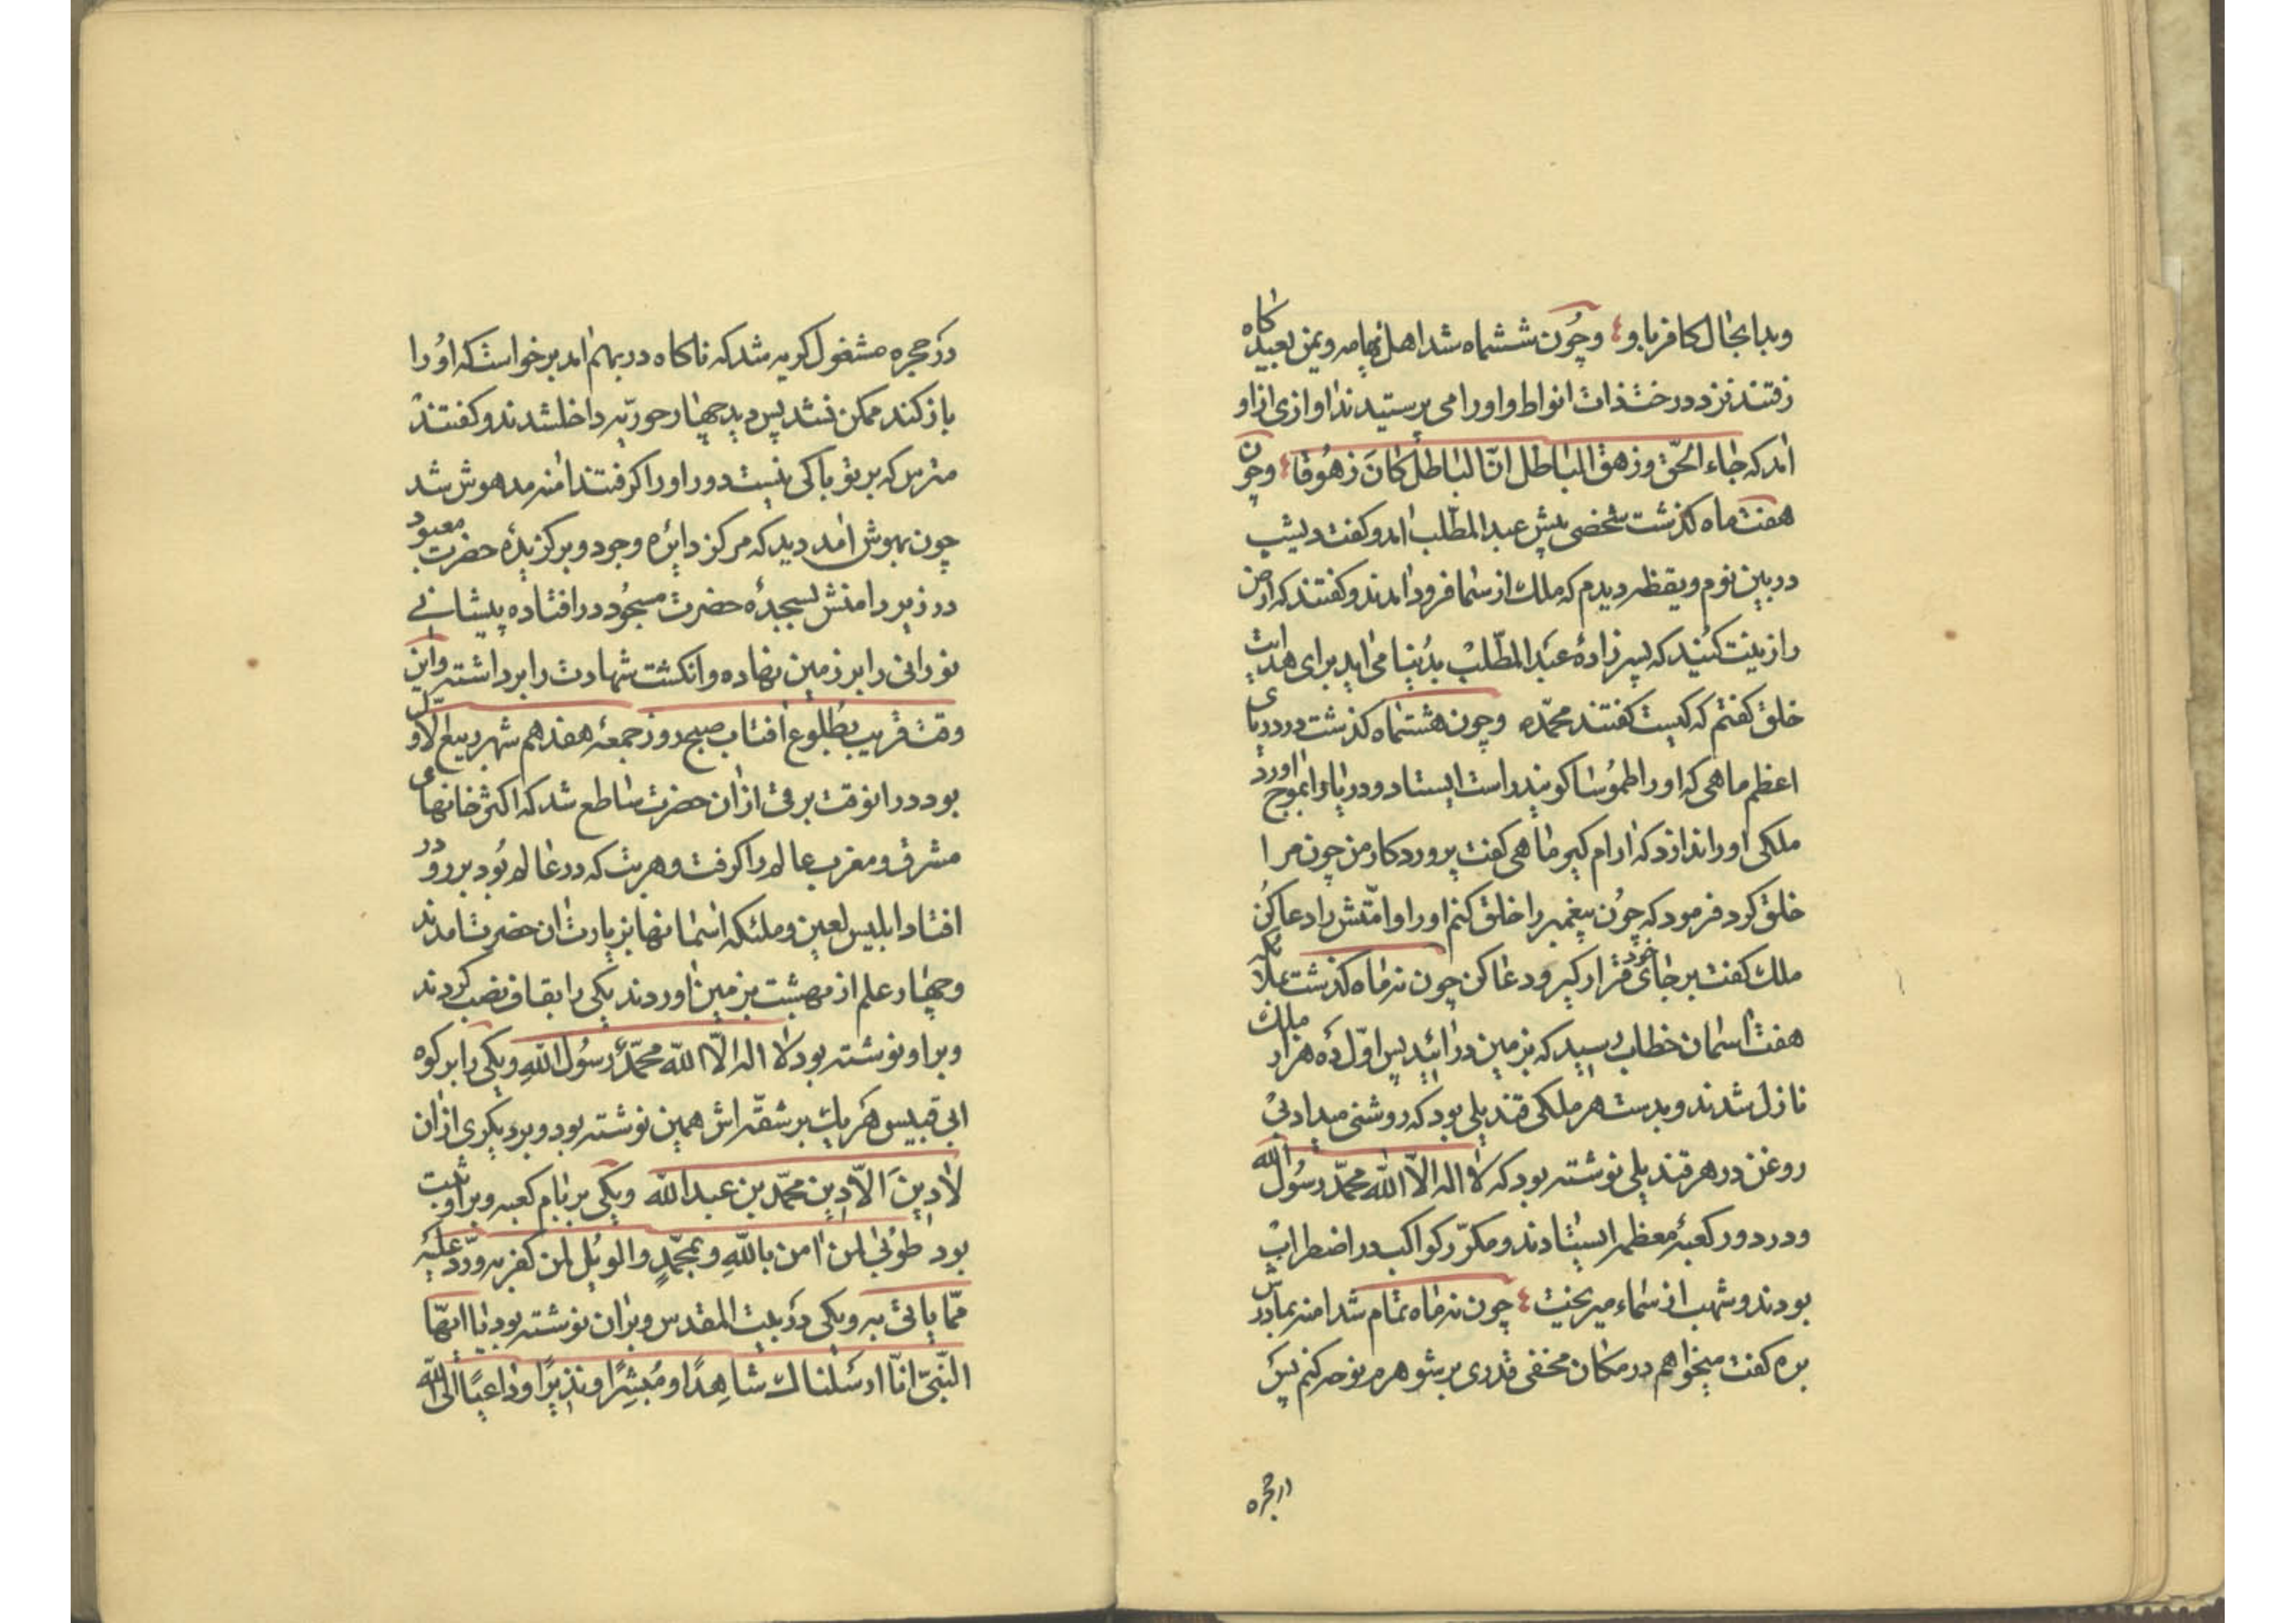 وبدا بحال کافر با و وچون ششماه شد اهل تهامه و یمن بعیدگاه
رفتند نزد درخت ذات انواط و او را می پرستیدند اوازی از او
امد که جاء الحق و زهق الباطل انّ الباطل کان زهوقا وچون
هفت ماه کذشت شخصی پیش عبد المطّلب امد و کفت دیشب
در بین نوم و یقظه دیدم که ملک از سما فرود امدند و کفتند که ارض
را زینت کنید که پسرزادهٔ عبد المطّلب بدنیا می اید برای هدایت
خلق کفتم که کیست کفتند محمّد وچون هشتماه کذشت در دریای
اعظم ماهی که او را طموسا کویند راست ایستاد و دریا را بموج اورد
ملکی او را ندا زد که ارام کیر ماهی کفت پروردکار من چون مرا
خلق کرد فرمود که چون پیغمبر را خلق کنم او را و امّتش را دعا کن
ملک کفت بر جای خود قرار کیر و دعا کن چون نه ماه کذشت بملائکه
هفت اسمان خطاب رسید که بزمین درائید پس اوّل ده هزار ملک
نازل شدند و بدست هر ملکی قندیلی بود که روشنی میداد بی
روغن در هر قندیلی نوشته بود که لا اله الّا الله محمّد رسول الله
و در دور کعبهٔ معظمه ایستادند و مکرّر کواکب در اضطراب
بودند و شهب از سماء میریخت چون نه ماه تمام شد امنه بمادرش
بره کفت میخواهم در مکان مخفی قدری بر شوهرم نوحه کنم پس
در حجره
در حجره مشغول کریه شد که ناکاه در بهم امد برخواست که او را
باز کند ممکن نشد پس دید چهار حوریه داخل شدند و کفتند
مترس که بر تو باکی نیست دور او را کرفتند امنه مدهوش شد
چون بهوش امد دید که مرکز دایرهٔ وجود و برکزیدهٔ حضرت معبود
در زیر دامنش بسجدهٔ حضرت مسجود در افتاده پیشانی
نورانی را بر زمین نهاده و انکشت شهادت را برداشته و این
وقت قریب بطلوع افتاب صبح روز جمعهٔ هفدهم شهر ربیع الاوّل
بود در انوقت برقی از ان حضرت ساطع شد که اکثر خانهای
مشرق و مغرب عالم را کرفت و هر بت که در عالم بود بر رو در
افتاد ابلیس لعین و ملئکه اسمانها بزیارت ان حضرت امدند
و چهار علم از بهشت بزمین اوردند یکی را بقاف نصب کردند
و بر او نوشته بود لا اله الّا الله محمّد رسول الله و یکی را بر کوه
ابی قبیس هر یک بر شقّه اش همین نوشته بود و بر دیکری از ان
لا دین الّا دین محمّد بن عبد الله و یکی بر بام کعبه و بر او ثبت
بود طوبی لمن امن بالله و بمحمّد والویل لمن کفر به وردّ علیه
ممّا یاتی به و یکی در بیت المقدس و بر ان نوشته بود یا ایّها
النّبیّ انّا ارسلناک شاهدًا و مُبشرًا و نذیرًا و داعیًا الی الله